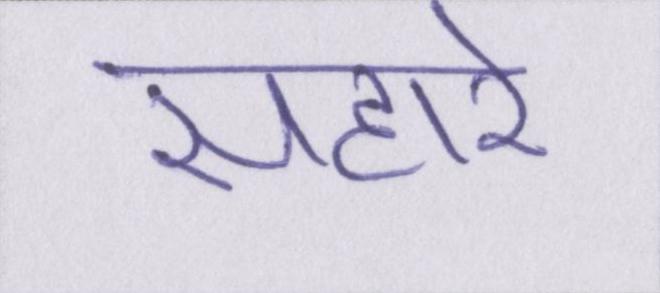 सहारे